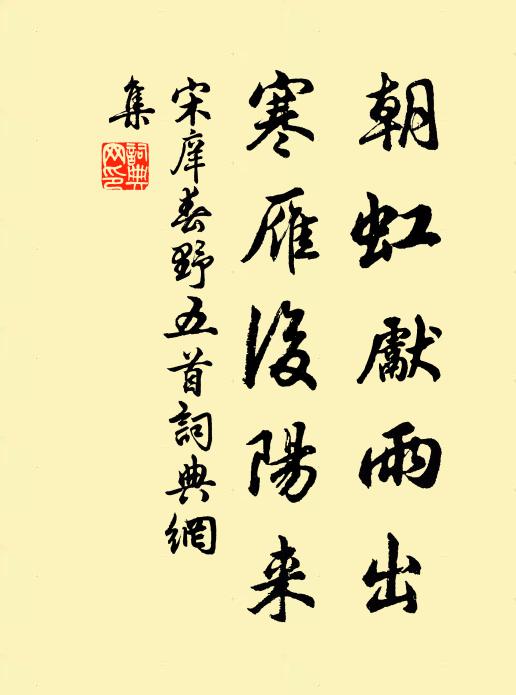 朝虹獻雨出
寒雁後陽来
宋庠春野五首詞典網
集
詞典網印